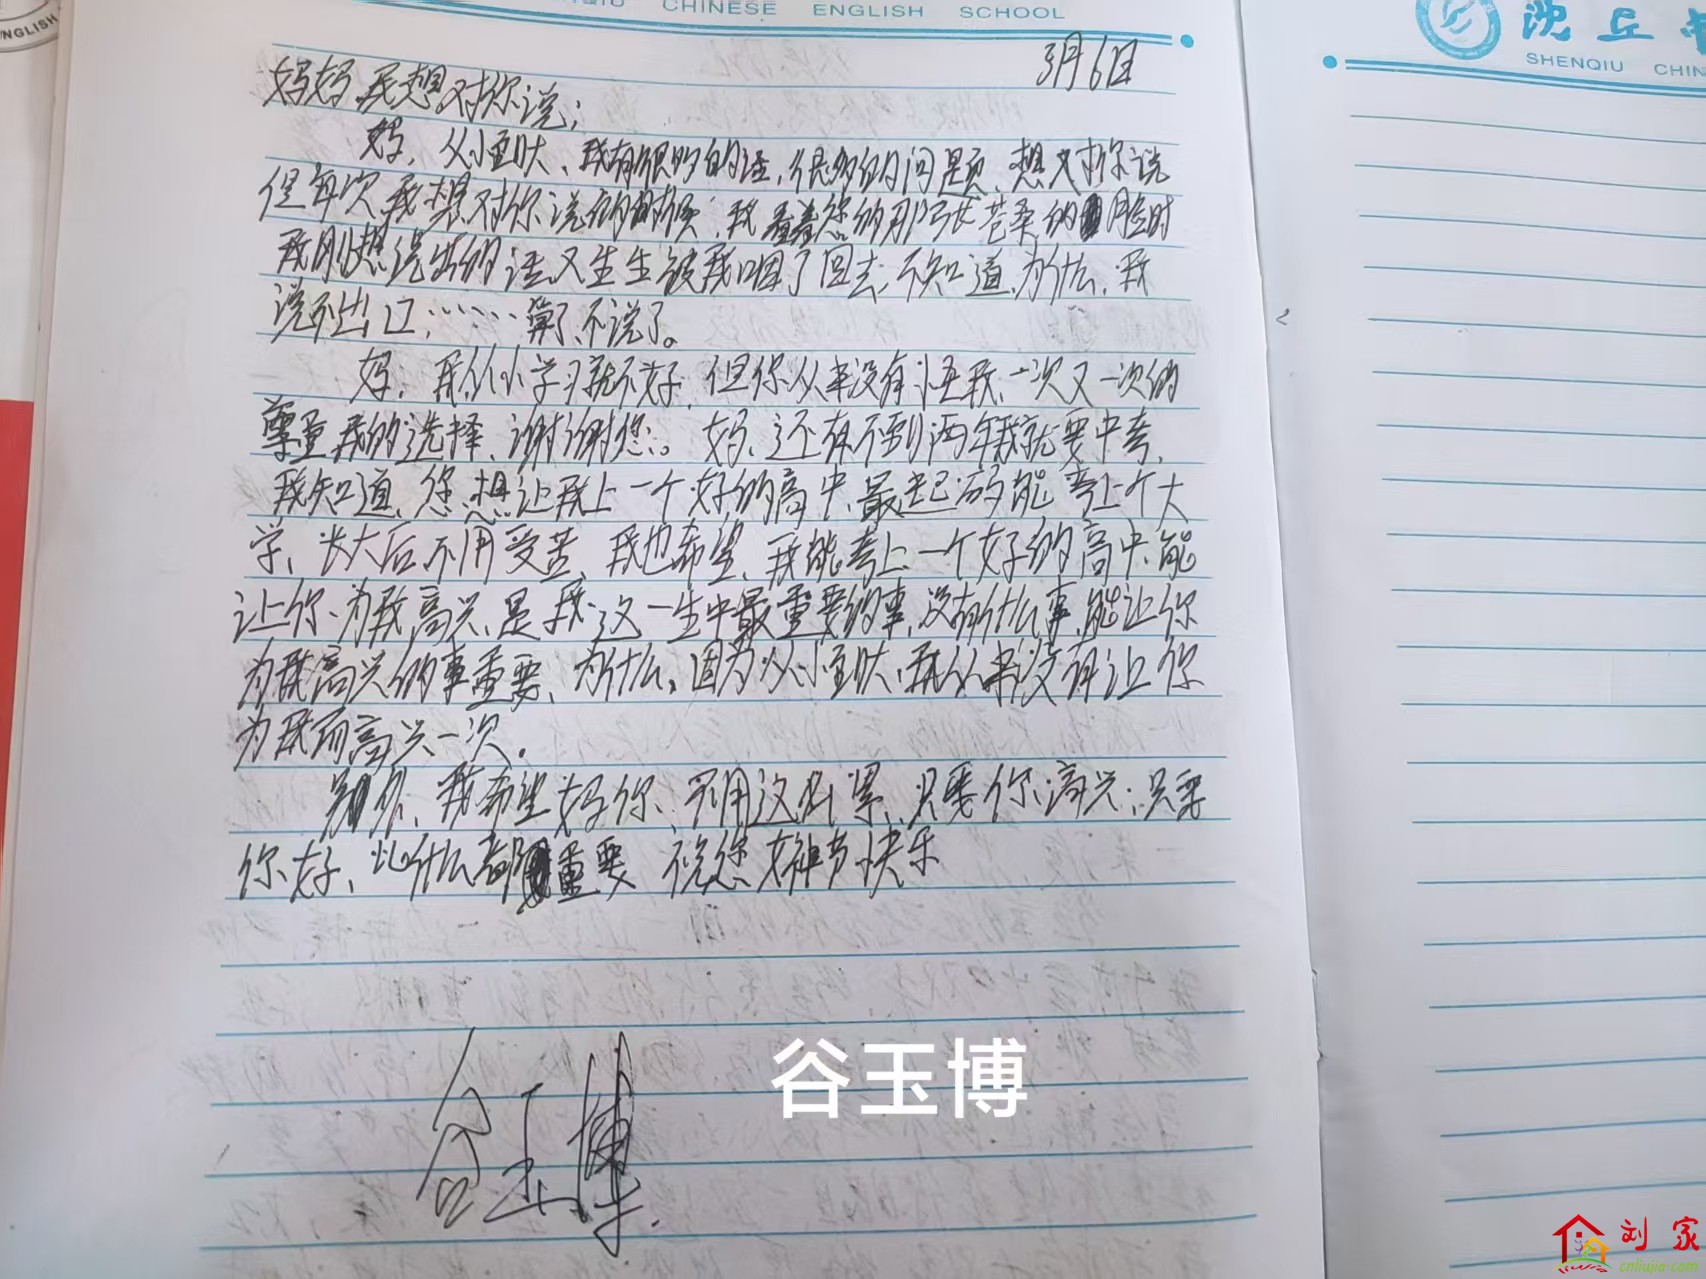 NGLISH
QIU CHINESE ENGLISH SCHOOL
沈丘
SHENQIU CHIN
3月6日
妈妈我想对你说；
妈，从小至大、我有很多的话，很多的问题、想对你说
但每次我想对你说的时候，我看着您的那张苍桑的脸时
我刚想说出的话又生生被我咽了回去，不知道为什么，我
说不出口，……算了、不说了。
妈，我从小学习就不好，但你从来没有怪我、一次又一次的
尊重我的选择、谢谢您。妈、还有不到两年我就要中考，
我知道、您想让我上一个好的高中、最起码能考上个大
学、长大后不用受苦、我也希望、我能考上一个好的高中、能
让你、为我高兴、是我这一生中最重要的事，没有什么事、能让你
为我高兴的事重要、为什么。因为从小至大、我从来没有让你
为我而高兴一次。
另外、我希望妈你、不用这么累、只要你高兴；只要
你好、比什么都重要 祝您女神节快乐
谷玉博
谷玉博
刘家
cnliujia.com